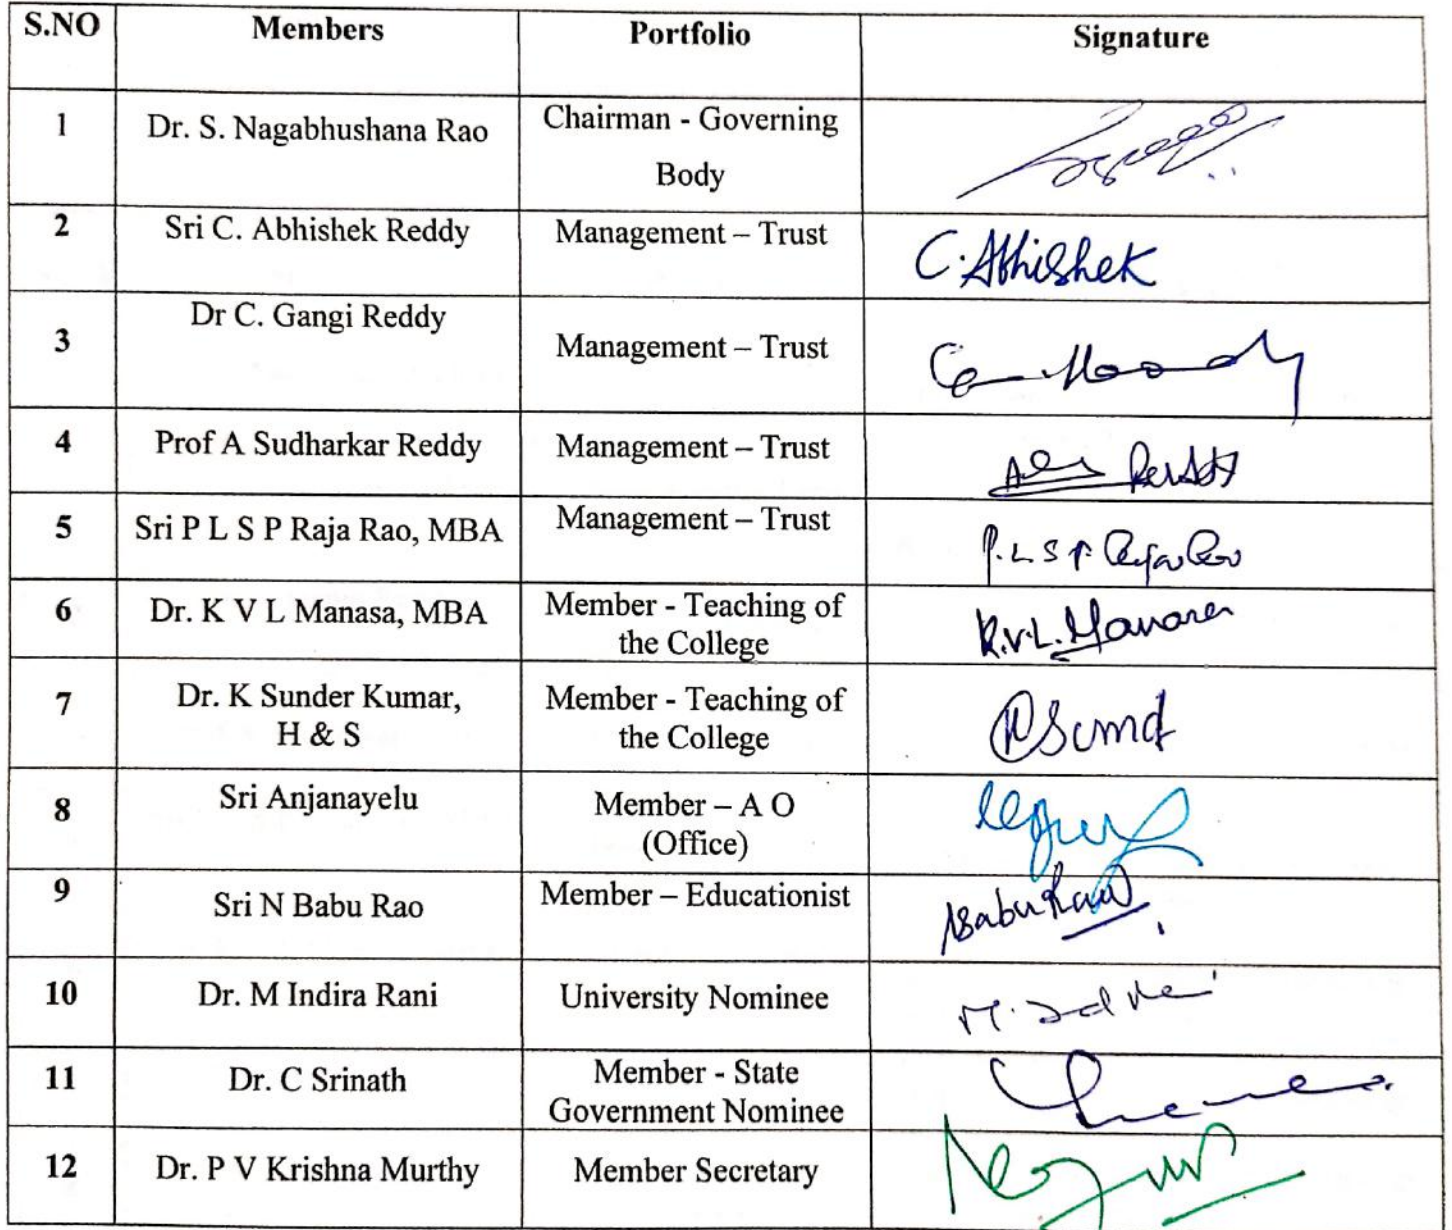 S.NO Members Portfolio Signature
1 Dr. S. Nagabhushana Rao Chairman - Governing
Body
2 Sri C. Abhishek Reddy Management – Trust C. Abhishek
3 Dr C. Gangi Reddy Management – Trust
4 Prof A Sudharkar Reddy Management – Trust
5 Sri P L S P Raja Rao, MBA Management – Trust P.L S P. Raja Rao
6 Dr. K V L Manasa, MBA Member - Teaching of
the College K.V.L. Manasa
7 Dr. K Sunder Kumar, Member - Teaching of
H & S the College
8 Sri Anjanayelu Member – A O
(Office)
9 Sri N Babu Rao Member – Educationist NBabu Rao
10 Dr. M Indira Rani University Nominee
11 Dr. C Srinath Member - State
Government Nominee
12 Dr. P V Krishna Murthy Member Secretary